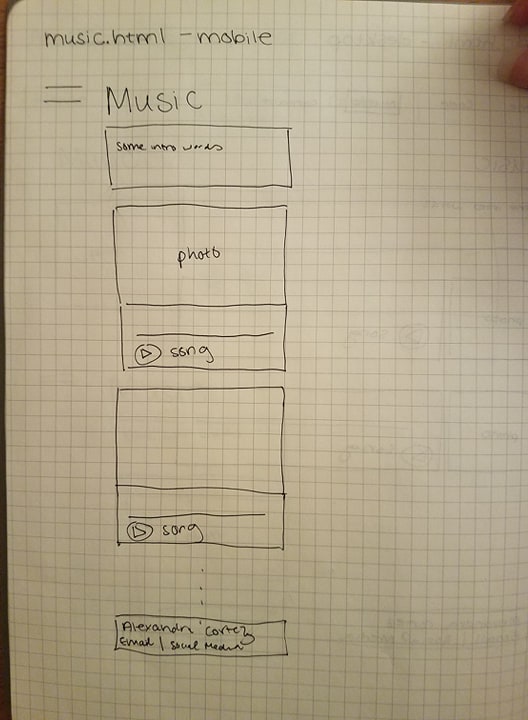 music.html - mobile
Music
some intro words
photo
song
song
Alexandri Cortez
Email | Social Media